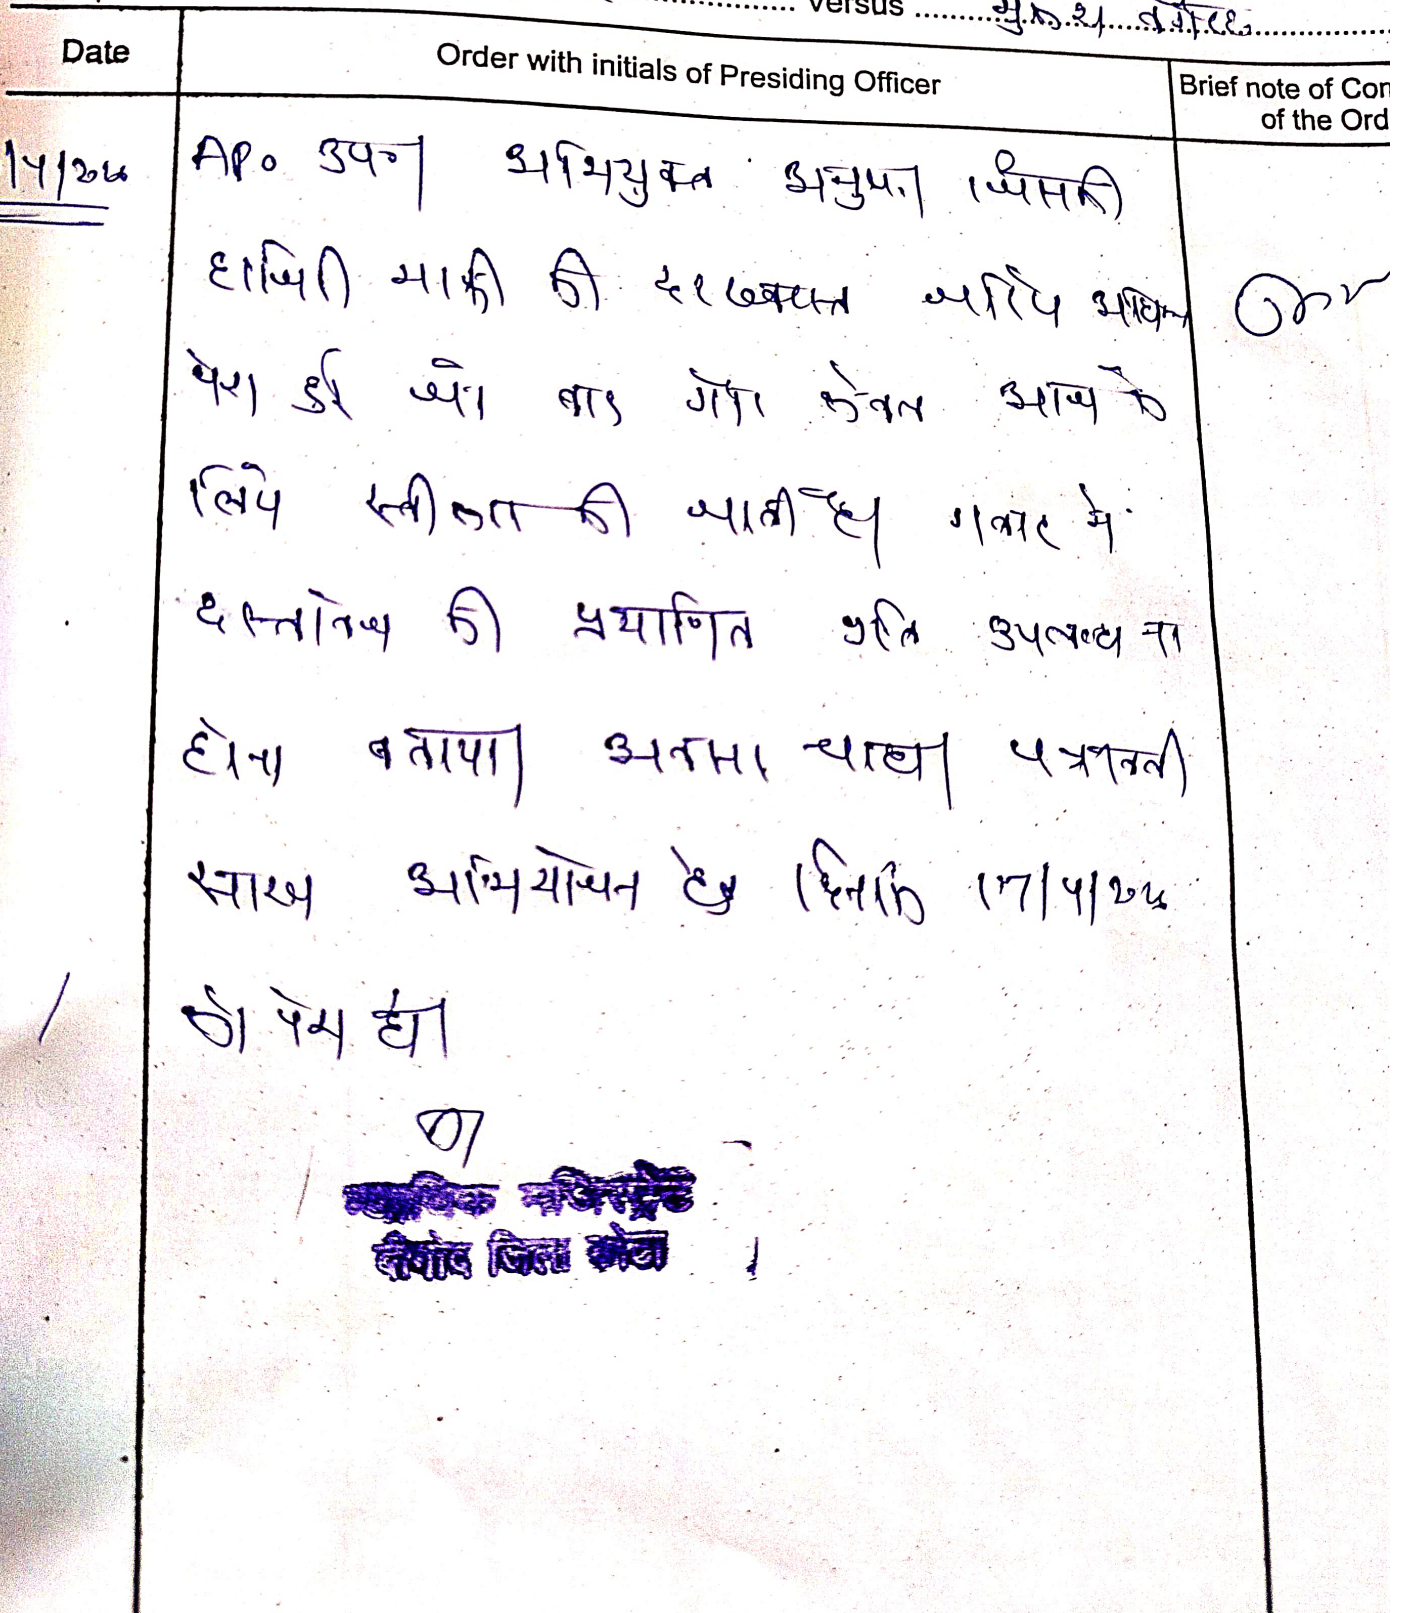 versus मुकेश वगैरह
Date
Order with initials of Presiding Officer
Brief note of Com
of the Ord
/4/26
APO उप०। अभियुक्त अनुप०। जिसकी
हाजिरी माफी की दरख्वास्त जरिये अधि०
पेश हुई जो बाद गौर केवल आज के
लिये स्वीकृत की जाती है। गवाह ने
दस्तावेज की प्रमाणित प्रति उपलब्ध ना
होना बताया। अवसर चाहा। पत्रावली
साक्ष्य अभियोजन हेतु दिनांक 17/4/26
को पेश हो।
न्यायिक मजिस्ट्रेट
दीगोद जिला कोटा